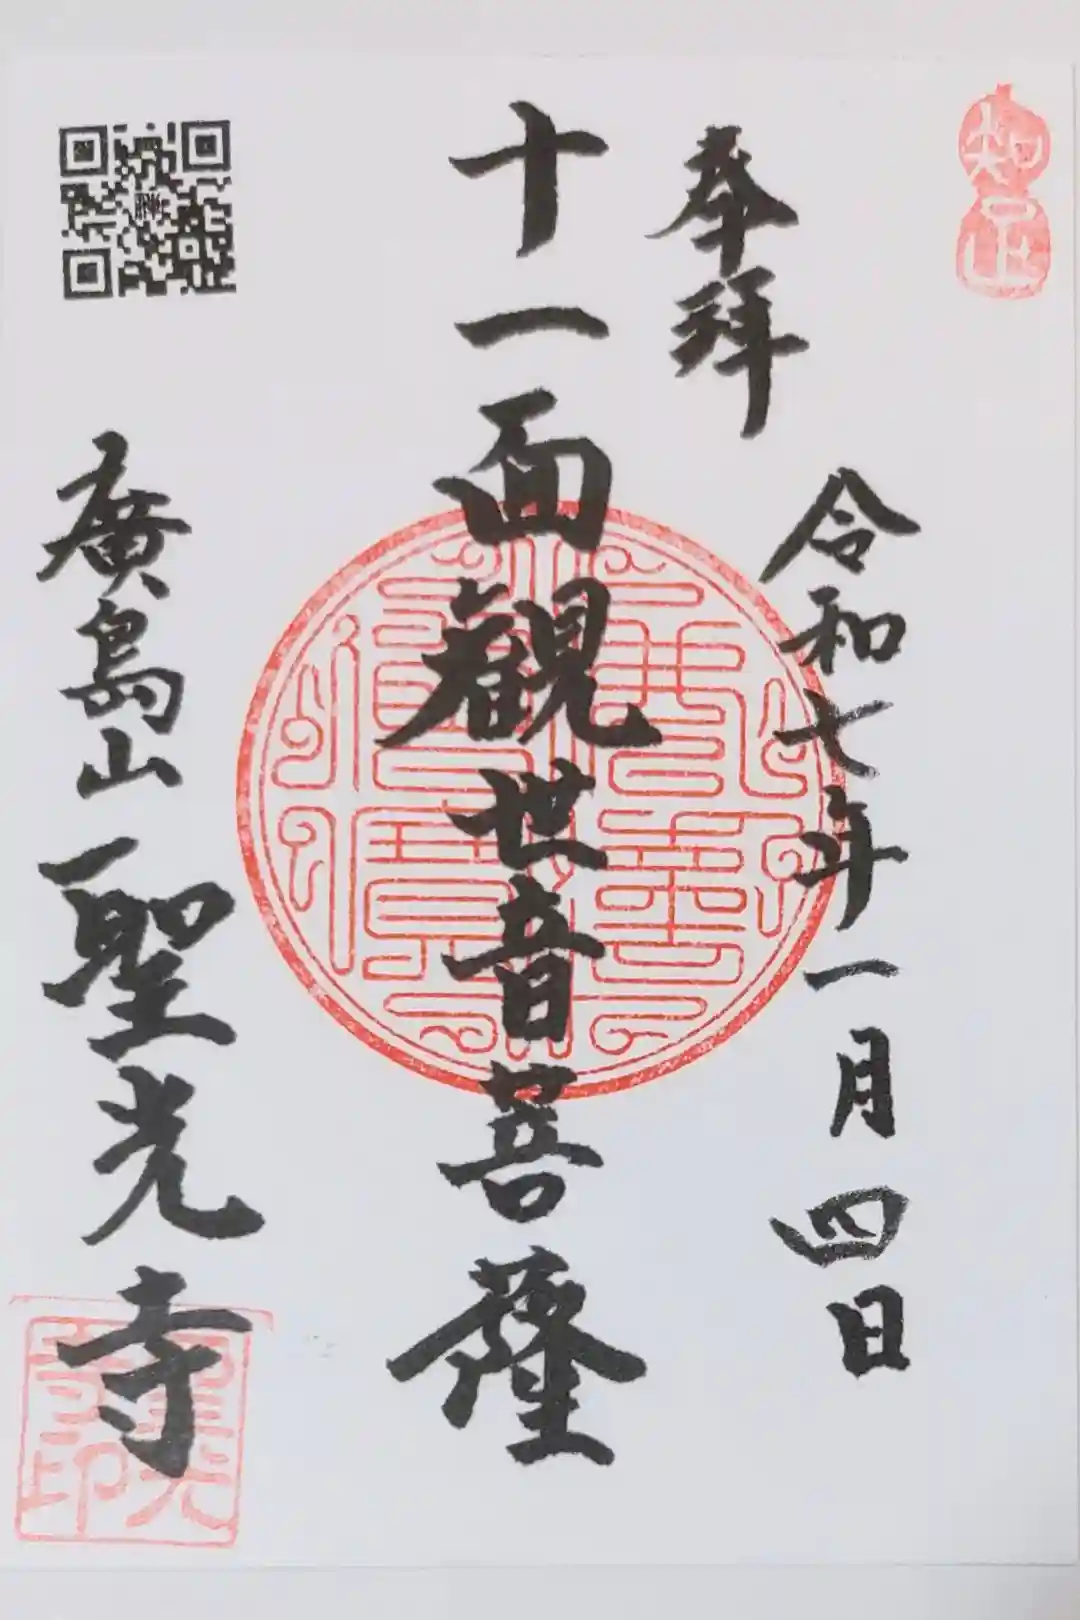 奉拜
令和七年一月四日
十一面観世音菩薩
廣島山
聖光寺